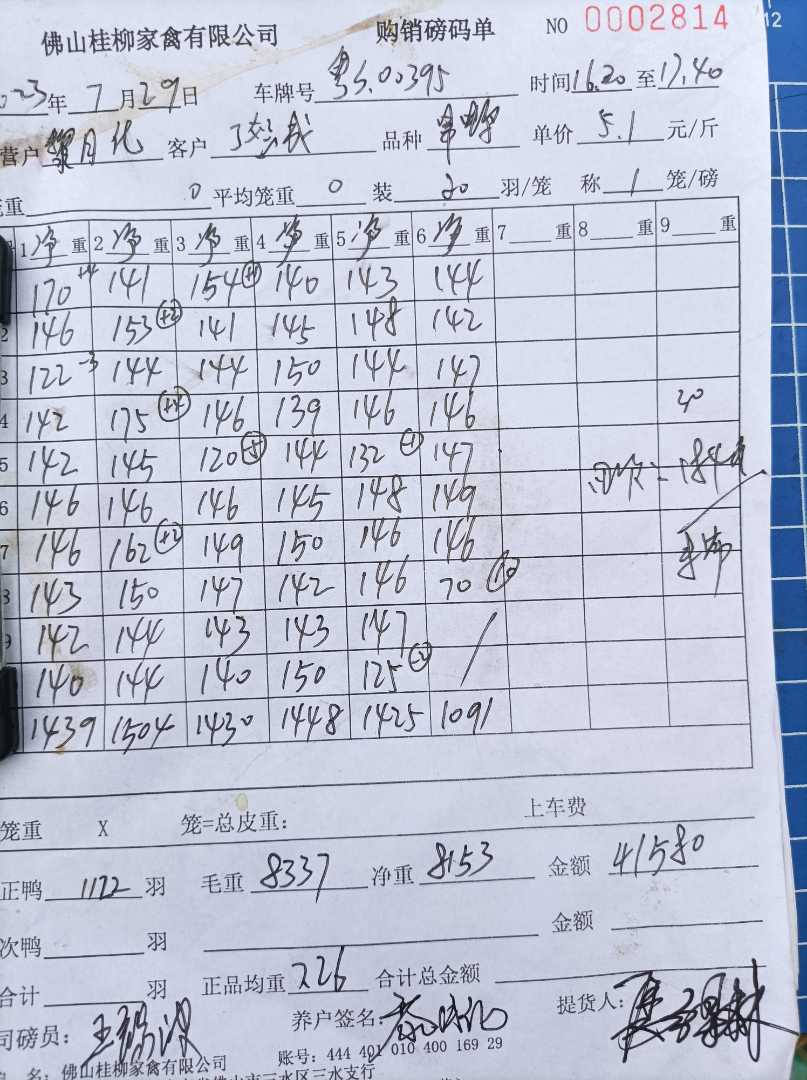 佛山桂柳家禽有限公司 购销磅码单 NO 0002814
2023年 7 月 29 日 车牌号 粤S.00395 时间 16.20 至 17.40
营户 客户 品种 单价 5.1 元/斤
笼重 0 平均笼重 0 装 20 羽/笼 称 1 笼/磅
1 净 重 2 净 重 3 净 重 4 净 重 5 净 重 6 净 重 7 重 8 重 9 重
170 +4 141 154 +1 140 143 144
2 146 153 +2 141 145 148 142
3 122 -3 144 144 150 144 147
4 142 175 +4 146 139 146 146 20
5 142 145 120 144 132 147
6 146 146 146 145 148 149 184
7 146 162 +2 149 150 146 146
8 143 150 147 142 146 70
9 142 144 143 143 147 /
140 144 140 150 125
1439 1504 1430 1448 1425 1091
笼重 X 笼=总皮重: 上车费
正鸭 1122 羽 毛重 8337 净重 8153 金额 41580
次鸭 羽 金额
合计 羽 正品均重 7.26 合计总金额
司磅员: 养户签名: 提货人:
户 名: 佛山桂柳家禽有限公司 账号: 444 401 010 400 169 29
省佛山市三水区三水支行